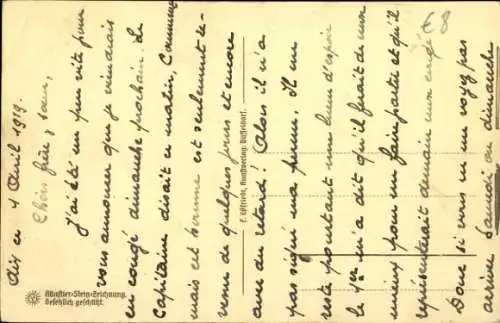 Aix ce 4 Avril 1919.
Chers frère & sœur,
J'ai été un peu vite pour
vous annoncer que je viendrais
en congé dimanche prochain. Le
Capitaine disait ce matin,
mais cet homme est seulement
venu de quelques jours et encore
avec du retard! Alors il n'a
pas signé ma perm. Il en
reste pourtant une lueur d'espoir
le 1er m'a dit qu'il ferait de son
mieux pour me faire partir et qu'il
représenterait demain mon congé
Donc si vous ne me voyez pas
arriver Samedi ou dimanche
68
E. Löffrich, Kunstverlag, Düsseldorf.
Künstler-Stein-Zeichnung.
Gesetzlich geschützt.